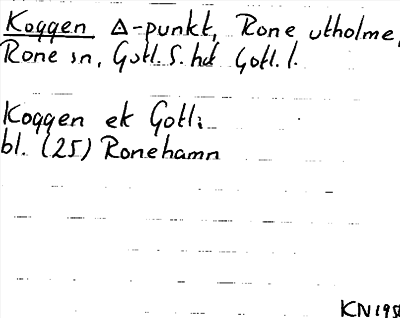 Koggen Δ-punkt, Rone utholme,
Rone sn, Gotl. S. hd Gotl. l.
Koggen ek Gotl;
bl. (25) Ronehamn